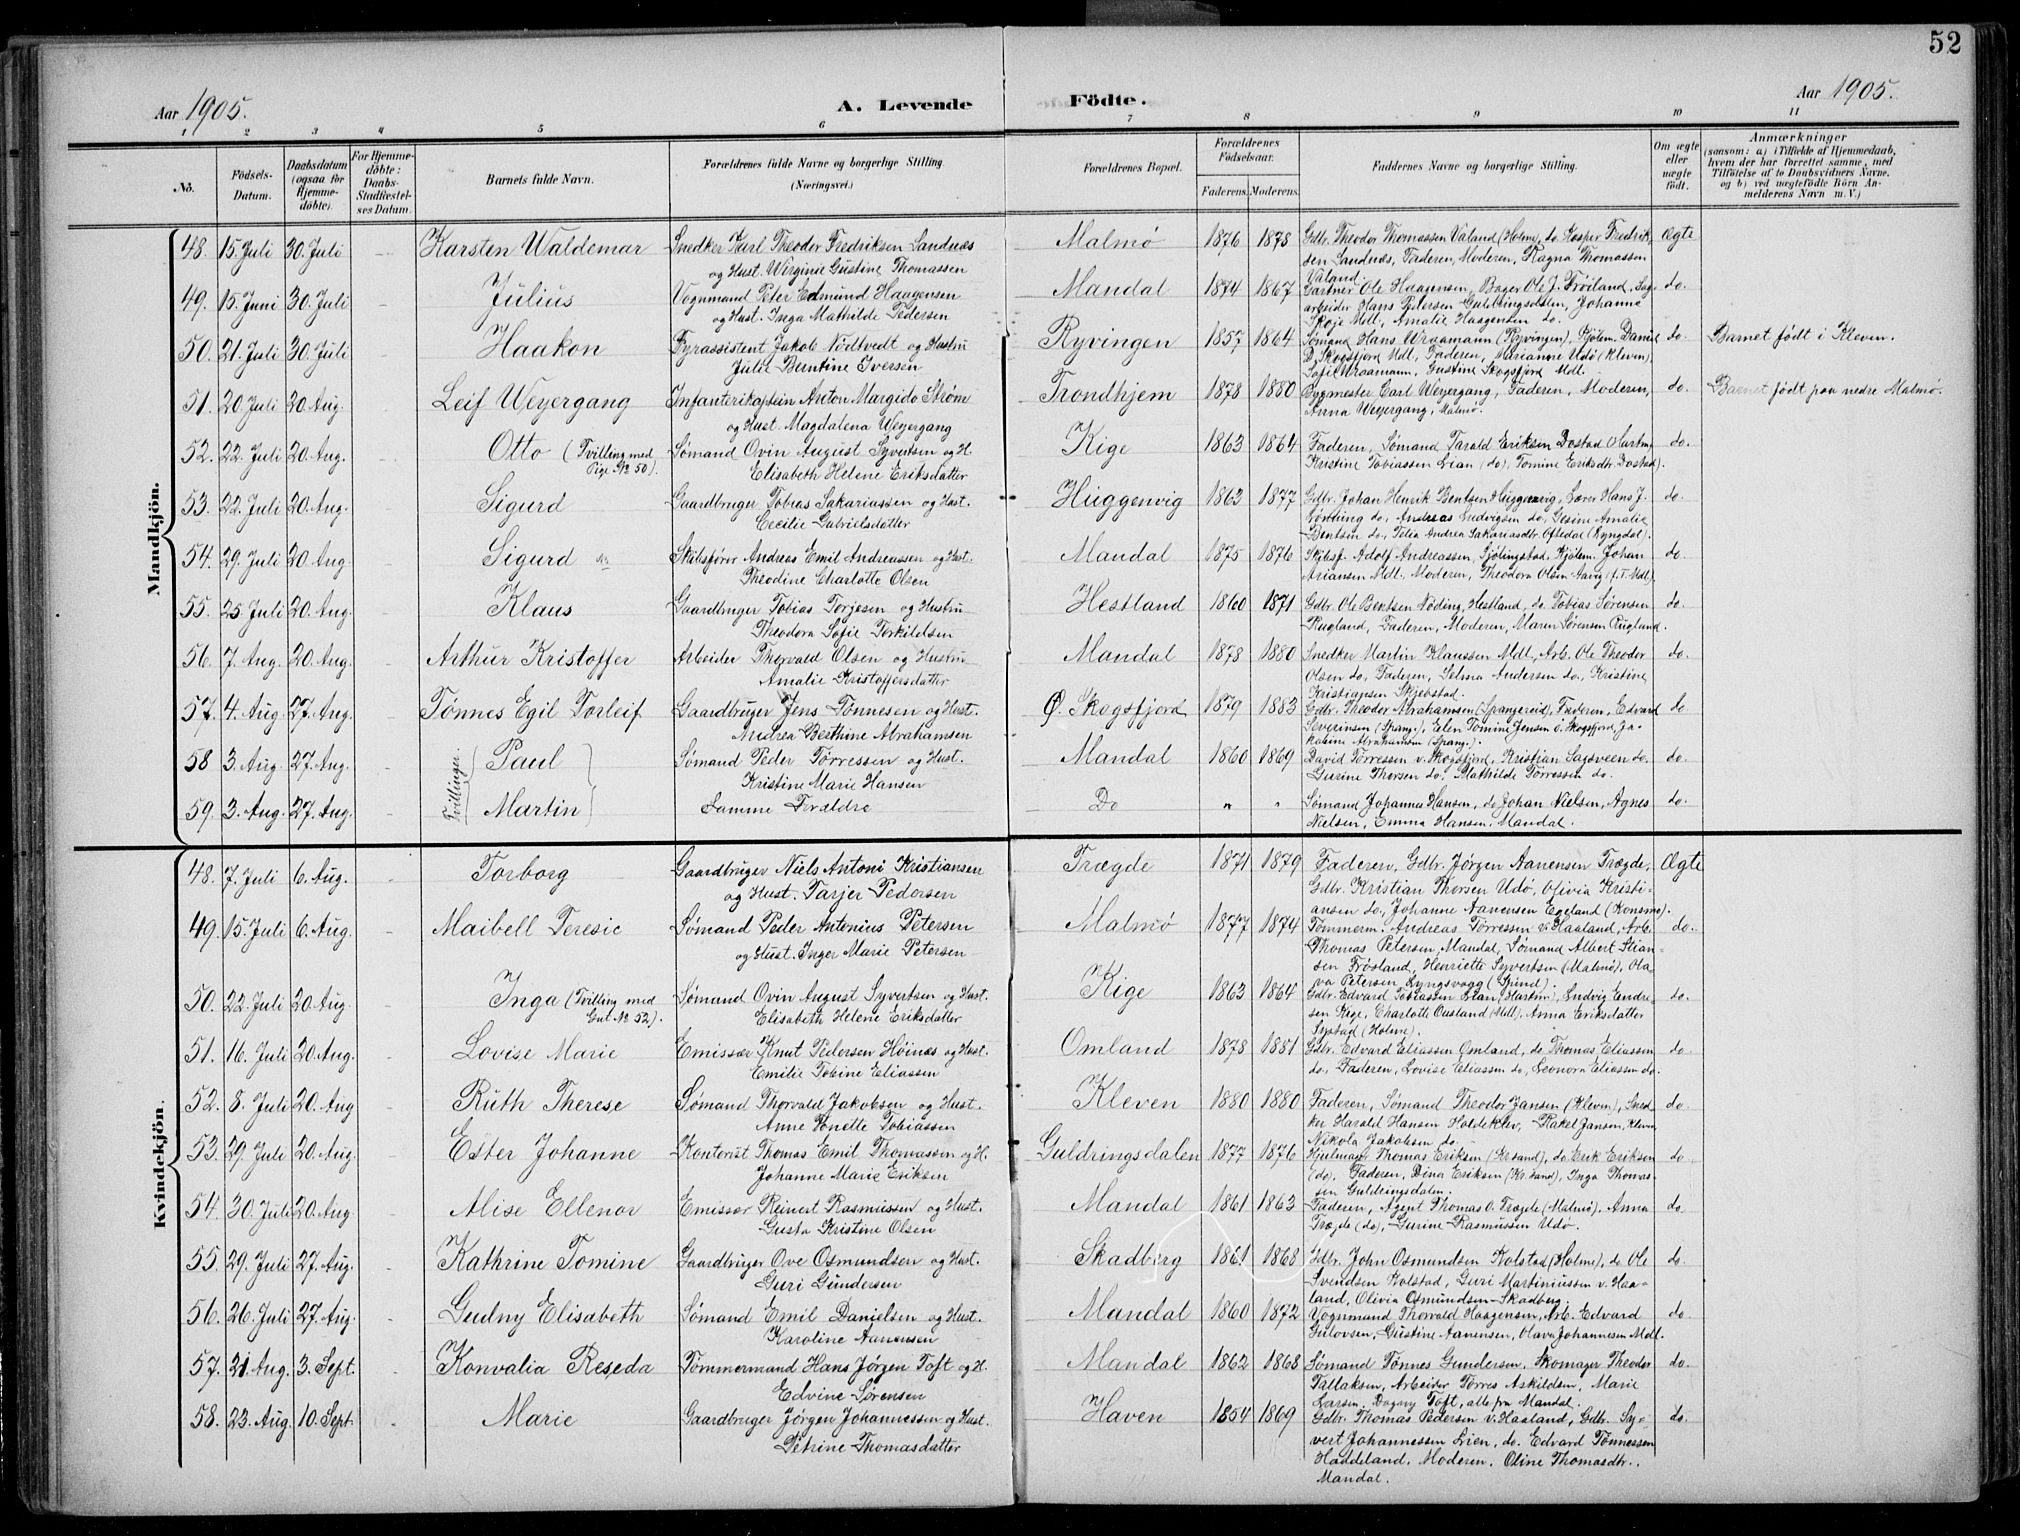 52
Aar 1905.
A. Levende Födte.
Aar 1905.
1 2 3 4 5 6 7 8 9 10 11
No.
Födsels-Datum.
Daabsdatum (ogsaa for Hjemme-döbte).
For Hjemme-döbte: Daabs-Stadfæstel-ses Datum.
Barnets fulde Navn.
Forældrenes fulde Navne og borgerlige Stilling.
(Næringsvei.)
Forældrenes Bopæl.
Forældrenes Födselsaar.
Faderens. Moderens.
Faddernes Navne og borgerlige Stilling.
Om ægte eller uægte födt.
Anmærkninger
(saasom: a) i Tilfælde af Hjemmedaab,
hvem der har forrettet samme, med
Tilföielse af to Daabsvidners Navne,
og b) ved uægtefödte Börn An-
melderens Navn m. V.)
Mandkjön.
48. 15. Juli 30. Juli Karsten Waldemar Snedker Karl Theodor Fredriksen Sandnæs Malmø 1876 1878 Gdbr. Theodor Thomassen Valand (Holme), do. Kasper Fredrik- Ægte
og Hust. Virginie Gustine Thomassen sen Sandnæs, Faderen, Moderen, Ragna Thomassen
Valand.
49. 15. Juni 30. Juli Julius Vognmand Peter Edmund Haagensen Mandal 1874 1867 Gartner Ole Haagensen, Bager Ole J. Frøiland, Sag- do.
og Hust. Inga Mathilde Pedersen arbeider Hans Pedersen Guldringsdalen, Johanne
Skoje Mdl., Amalie Haagensen do.
50. 21. Juli 30. Juli Haakon Fyrassistent Jakob Nödtvedt og Hustru Ryvingen 1857 1864 Sømand Hans Uraamann (Ryvingen), Kjøbm. Daniel do. Barnet født i Kleven.
Julie Bentine Iversen D. Skogsfjord Mdl., Faderen, Marianne Udö (Kleven),
Sofie Uraamann, Gustine Skogsfjord Mdl.
51. 20. Juli 20. Aug. Leif Weyergang Infanterikaptein Anton Margido Strøm Trondhjem 1878 1880 Bygmester Carl Weyergang, Faderen, Moderen, do. Barnet født paa nedre Malmø.
og Hust. Magdalena Weyergang Anna Weyergang, Malmø.
52. 22. Juli 20. Aug. Otto (Tvilling med Sømand Ovin August Syvertsen og H. Kige 1863 1864 Faderen, Sømand Tarald Eriksen Dostad (Hartm. do.
Pige № 50). Elisabeth Helene Eriksdatter Kristine Tobiassen Lian (do), Tomine Eriksdtr. Dostad).
53. 22. Juli 20. Aug. Sigurd Gaardbruger Tobias Sakariassen og Hust. Huggenvig 1863 1877 Gdbr. Johan Henrik Bentsen Huggenvig, Lærer Hans J. do.
Cecilie Gabrielsdatter Lönning do, Andreas Ludvigsen do, Gesine Amalie
Bentsen do, Telia Andrea Sakariasdtr Oftedal (Kyngdal).
54. 29. Juli 20. Aug. Sigurd Skibsfører Andreas Emil Andreassen og Hust. Mandal 1875 1876 Skibsf. Adolf Andreassen, Sjölingstad, Kjöbm. Johan do.
Theodine Charlotte Olsen Ariansen Mdl., Moderen, Theodora Olsen Aavig (f. T. Mdl).
55. 25. Juli 20. Aug. Klaus Gaardbruger Tobias Torjesen og Hustru Hestland 1860 1871 Gdbr. Ole Bentsen Nöding, Hestland, do. Tobias Sørensen do.
Theodora Sofie Torkildsen Rugland, Faderen, Moderen, Maren Sørensen Rugland.
56. 7. Aug. 20. Aug. Arthur Kristoffer Arbeider Thorvald Olsen og Hustru Mandal 1878 1880 Snedker Martin Klaussen Mdl., Arb. Ole Theodor do.
Amalie Kristoffersdatter Olsen do, Faderen, Selma Andersen do, Kristine
Kristiansen Skjebstad.
57. 4. Aug. 27. Aug. Tönnes Egil Torleif Gaardbruger Jens Tønnesen og Hust. Ø. Skogsfjord 1879 1883 Gdbr. Theodor Abrahamsen (Spangereid), Faderen, Edvard do
Andrea Berthine Abrahamsen Severinsen (Spang.), Elen Tomine Jensen ö. Skogsfjord, Ja-
kobine Abrahamsen (Spang.).
58 3. Aug. 27. Aug. Tvillinger. Paul Sømand Peder Tørressen og Hust. Mandal 1860 1869 David Tørressen v. Skogsfjord, Kristian Sagsveen do. do.
Kristine Marie Hansen Gurine Thorsen do. Mathilde Tørressen do.
59. 3. Aug. 27. Aug. Martin Samme Forældre Do " " Sømand Johannes Hansen, do Johan Nielsen, Agnes do.
Nielsen, Emma Hansen. Mandal.
Kvindekjön.
48. 7. Juli 6. Aug. Torborg Gaardbruger Niels Antoni Kristiansen Trægde 1871 1879 Faderen, Gdbr. Jørgen Aanensen Trægde, Ægte
og Hust. Tarjer Pedersen Gdbr. Kristian Thorsen Udö, Olivia Kristi-
ansen do., Johanne Aanensen Egeland (Konsmo).
49. 15. Juli 6. Aug. Maibell Teresie Sømand Peder Antonius Petersen Malmø 1877 1874 Tømmerm. Andreas Tørressen v. Haaland, Arb. do.
og Hust. Inger Marie Petersen Thomas Petersen, Mandal, Sømand Albert Stian-
sen Frøsland, Henriette Syvertsen (Malmø), Ola-
va Petersen Lyngsvaag (Grind).
50. 22. Juli 20 Aug. Inga (Tvilling med Sømand Ovin August Syvertsen og Hust. Kige 1863 1864 Gdbr. Edvard Tobiassen Lian (Hartm), Ludvig Endre- do.
Gut № 52). Elisabeth Helene Eriksdatter sen Kige, Charlotte Ousland (Mdl), Anna Eriksdatter
(Holme).
51. 16. Juli 20. Aug. Lovise Marie Emissær Knut Pedersen Höinæs og Hust. Omland 1878 1881 Gdbr. Edvard Eliassen Omland, do Thomas Eliassen do.
Emilie Tobine Eliassen do, Faderen, Lovise Eliassen do, Leonora Eliassen do.
52. 8. Juli 20. Aug Ruth Therese Sømand Thorvald Jakobsen og Hust. Kleven 1880 1880 Faderen, Sømand Theodor Jansen (Kleven), Sned- do.
Anne Bnette Tobiassen ker Harald Hansen Holdeklev, Rakel Jansen, Kleven,
Nikola Jakobsen do.
53. 29. Juli 20. Aug. Ester Johanne Kontorist Thomas Emil Thomassen og H. Guldringsdalen 1877 1876 Hjulmager Thomas Eriksen (Kr.sand), do. Erik Eriksen do
Johanne Marie Eriksen (do), Faderen, Dina Eriksen (Kr.sand), Inga Thomas-
sen Guldringsdalen.
54. 30. Juli 20. Aug Alise Ellenor Emissær Reinert Rasmussen og Hust. Mandal 1861 1863 Faderen, Agent Thomas O. Trægde (Malmø), Anna do.
Gusta Kristine Olsen Trægde (do), Gurine Rasmussen Udø.
55. 29. Juli 27. Aug. Kathrine Tomine Gaardbruger Ove Osmundsen og Hust. Skadberg 1861 1868 Gdbr. John Osmundsen Kolstad (Holme), do. Ole do.
Guri Gundersen Svendsen Kolstad, Guri Martiniussen v. Haa-
land, Olivia Osmundsen Skadberg.
56. 26. Juli 27. Aug. Gudny Elisabeth Sømand Emil Danielsen og Hust. Mandal 1860 1872 Vognmand Thorvald Haagensen, Arb. Edvard do
Karoline Aanensen Gulovsen, Gustine Aanensen, Olava Johannesen Mdl.
57. 21 Aug. 3. Sept. Konvalia Reseda Tømmermand Hans Jørgen Toft og H. Mandal 1862 1868 Sømand Tønnes Gundersen, Skomager Theodor do.
Edvine Sørensen Tallaksen, Arbeider Tørres Askildsen, Marie
Larsen, Dagny Toft, alle fra Mandal.
58. 23. Aug. 10. Sept. Marie Gaardbruger Jørgen Johannessen og Hust. Haven 1854 1869 Gdbr. Thomas Pedersen v. Haaland, Gdbr. Sy- do.
Petrine Thomasdatter vert Johannessen Lien, do. Edvard Tønnessen
Haddeland, Moderen, Oline Thomasdtr.
Mandal.